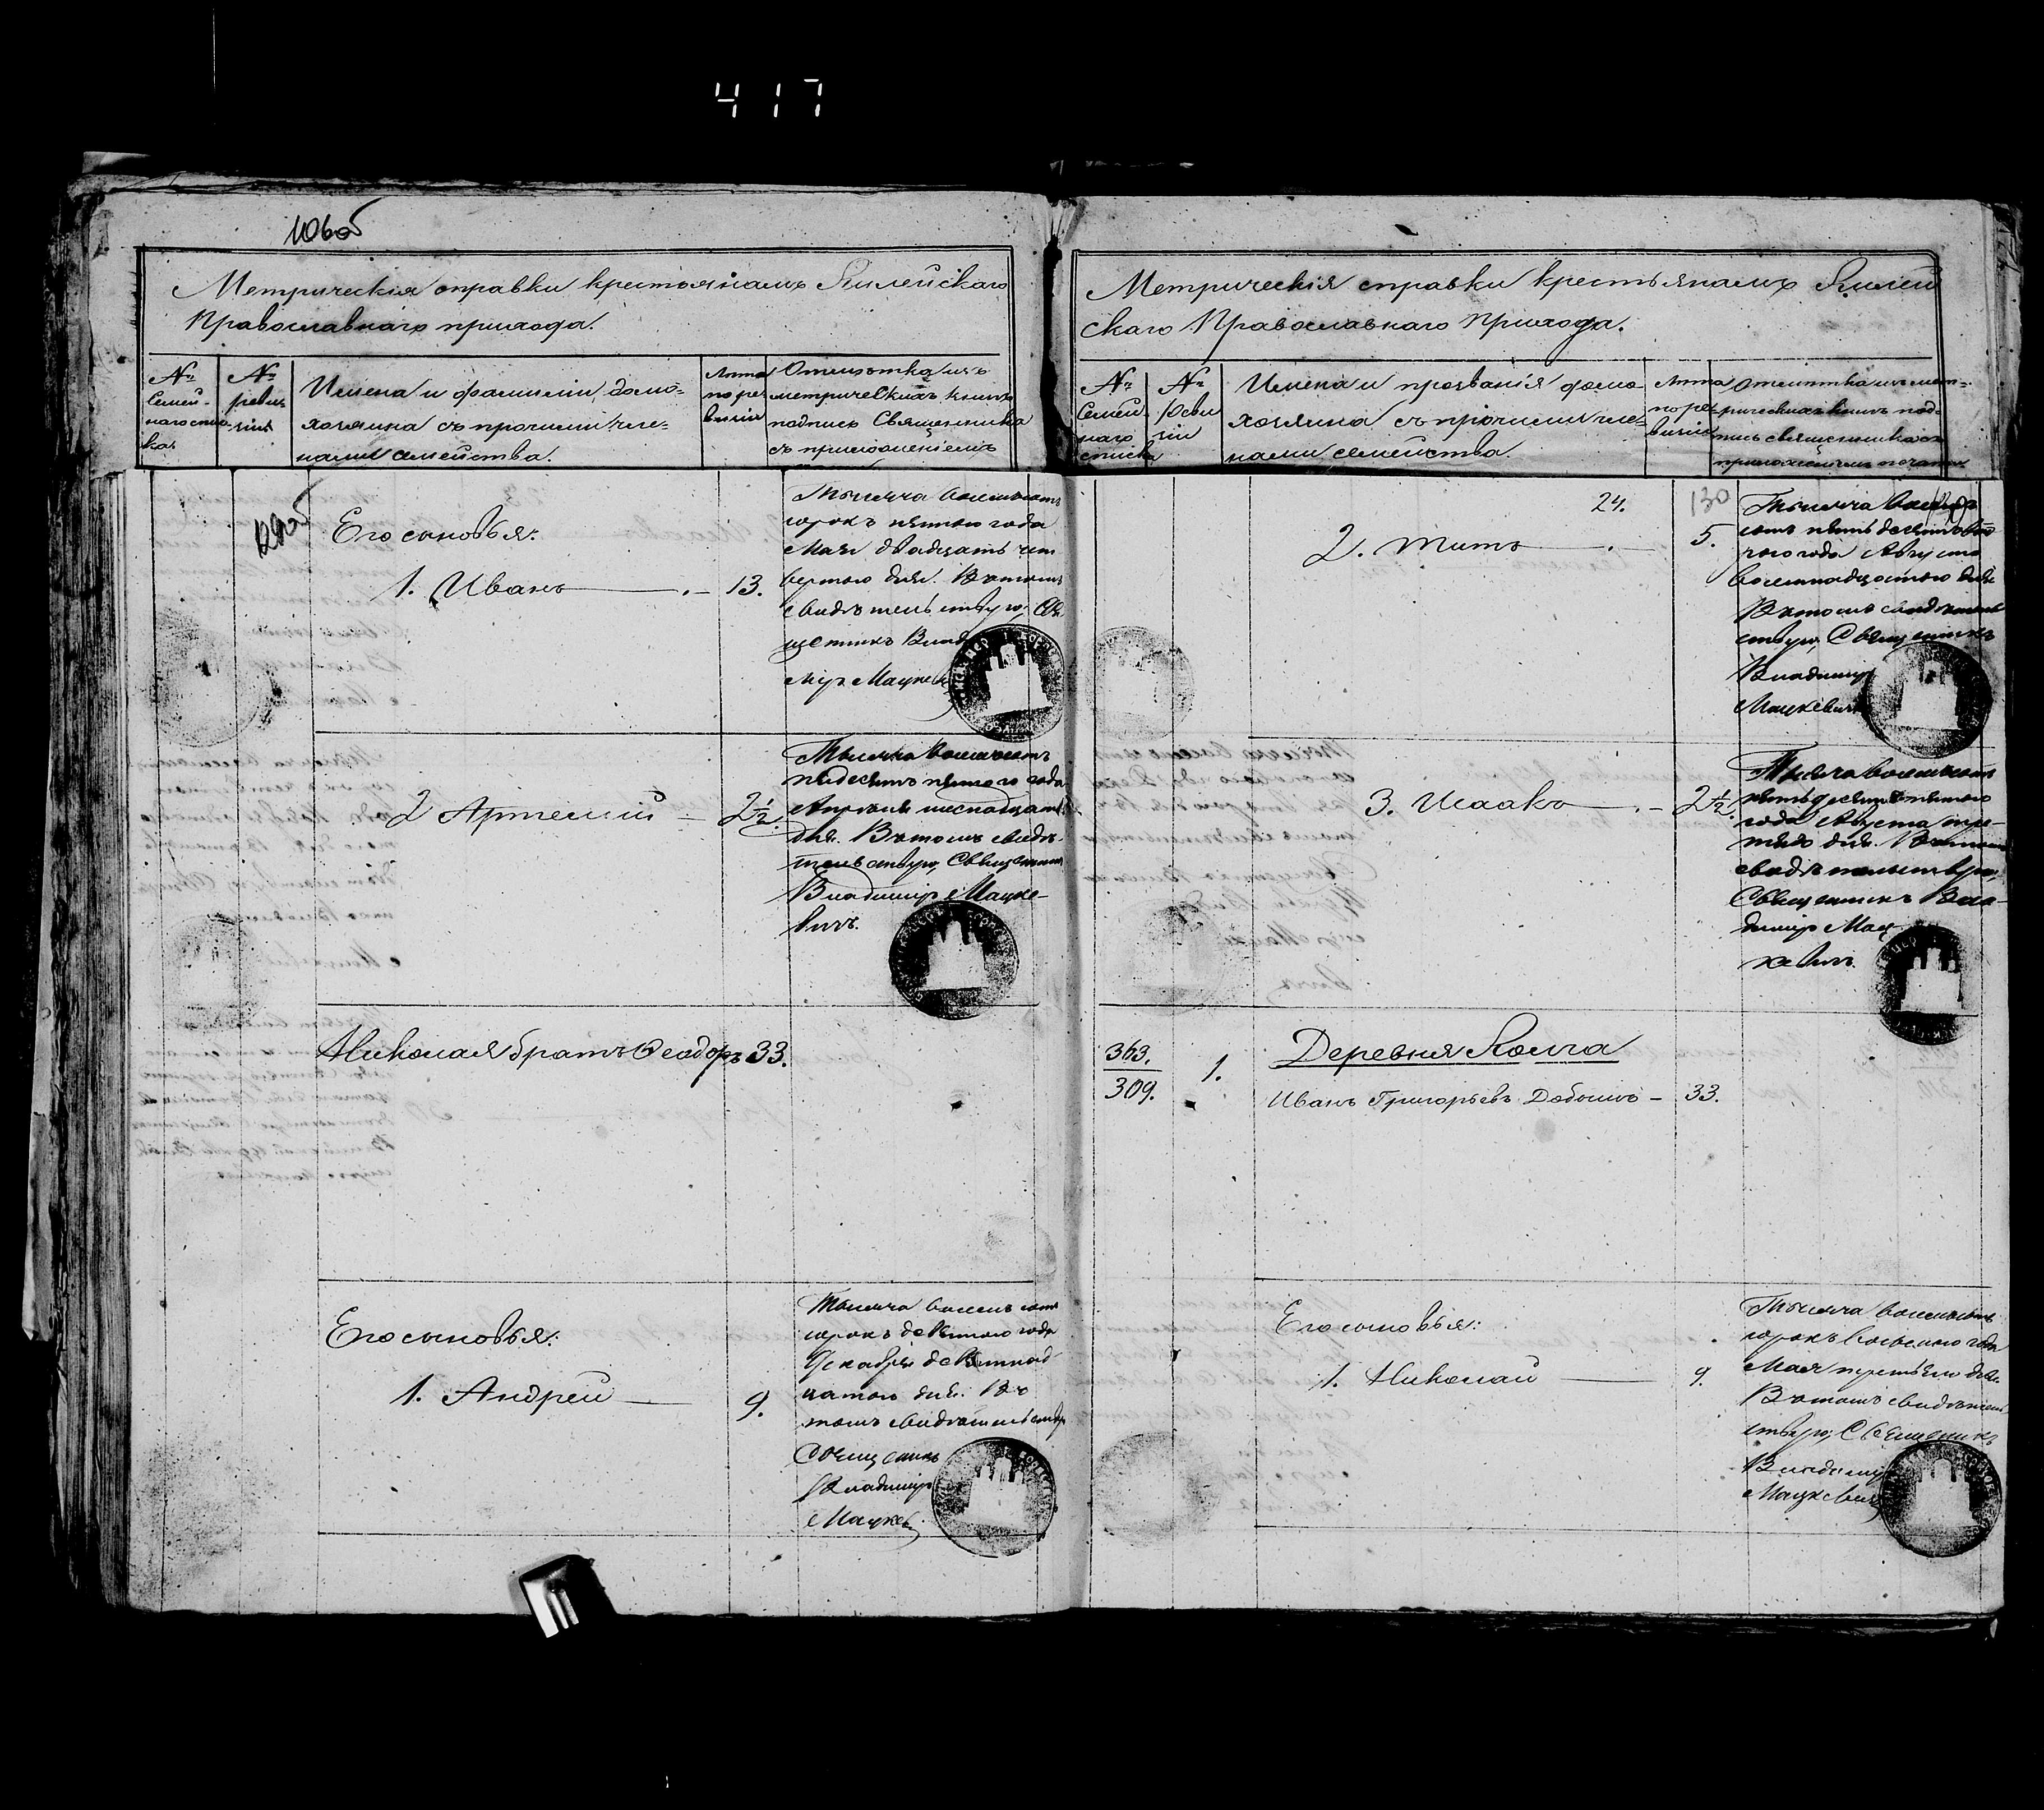 417
110 об
Метрическія справки крестьянамъ Килейскаго
Православнаго прихода.
№
семей-
наго спис-
ка
№
реви-
зіи
Имена и фамиліи домо-
хозяина съ прочими чле-
нами семейства.
Лета
по ре
визіи
Отмѣтка изъ
метрическихъ книгъ
подпись Священника
съ приложеніемъ
129 об
Его сыновья:
1. Иванъ — 13.
Тысяча восемьсотъ
сорокъ пятого года
Мая двадцать чет
вертого дня. Въ томъ
свидѣтельствую, Свя
щенникъ Влад
міръ Мацкев
2 Артемій — 2½.
Тысяча восемьсотъ
пядесятъ пятого года
Апрѣля шеснадцат
дня. Въ томъ свидѣ-
тельствую, Священник
Владиміръ Мацке-
вичъ.
Николая братъ Ѳеодоръ 33.
Его сыновья:
1. Андрей — 9.
Тысяча восемьсотъ
сорокъ девятого года
Декабря девятнад-
цатого дня. Въ
томъ свидѣтельствую
Священникъ
Владиміръ
Мацкев
Метрическія справки крестьянамъ Килей
скаго Православнаго Прихода.
№
Семей
наго
списка
№
Реви
зіи
Имена и прозванія домо-
хозяина съ прочими чле-
нами семейства.
Лета
по ре-
визіи
Отмѣтка изъ мет-
рическихъ книгъ под-
пись священника съ
приложеніемъ печати
24.
130
2. Титъ — 5.
Тысяча восемь
сотъ пятьдесятъ вто
рого года Августа
восемнадцатого дня
Въ томъ свидѣтель
ствую, Священникъ
Владиміръ
Мацкевичъ
3. Исаакъ — 2½.
Тысяча восемьсотъ
пятьдесятъ пятого
года Августа тре-
тьяго дня. Въ томъ
свидѣтельствую,
Священникъ Вла-
диміръ Мац
кевичъ.
363.
309.
1.
Деревня Колча
Иванъ Григорьевъ Добышъ — 33.
Его сыновья:
1. Николай — 9.
Тысяча восемьсотъ
сорокъ восьмого года
Мая третьяго дня.
Въ томъ свидѣтель
ствую, Священникъ
Владимір
Мацкевич